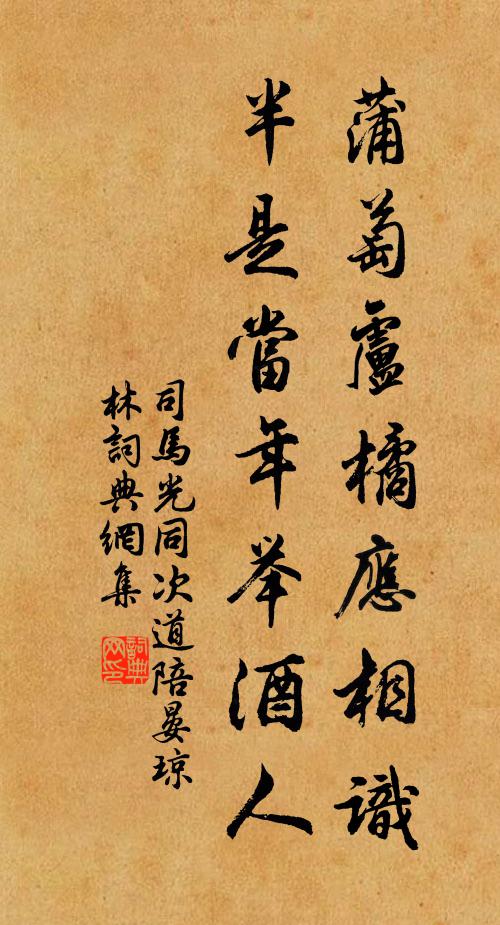 蒲萄盧橘應相識
半是當年举酒人
司馬光同次道陪晏琼
林詞典網集
詞典
网印